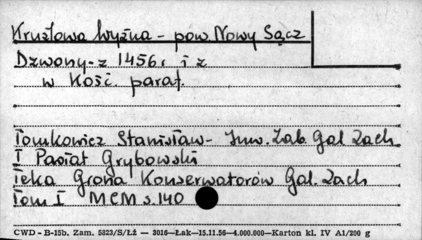 Krużlowa Wyżna - pow. Nowy Sącz
Dzwony - z 1456 r. i z
w Kość. paraf.
Tomkowicz Stanisław - Inw. Zab. Gal. Zach
I Powiat Grybowski
Teka Grona Konserwatorów Gal. Zach
Tom I MCM s. 140
CWD - B-15b. Zam. 5323/S/Łż — 3016—Łak—15.11.56—4.000.000—Karton kl. IV A1/200 g